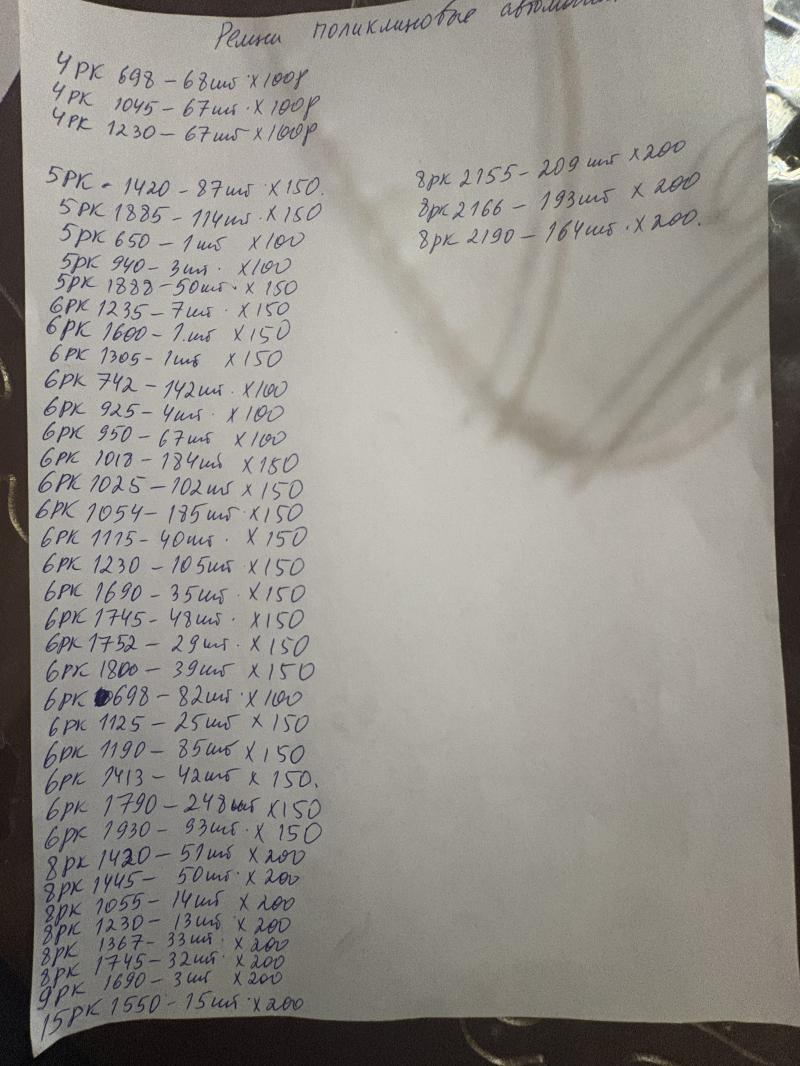 Ремни поликлиновые
4РК 698 – 68шт х100р
4РК 1045 – 67шт х100р
4РК 1230 – 67шт х100р
5РК - 1420 – 87шт х150.
5РК 1885 – 114шт. х150
5РК 650 – 1шт х100
5РК 940 – 3шт. х100
5РК 1888 – 50шт. х150
6РК 1235 – 7шт. х150
6РК 1600 – 1.шт х150
6РК 1305 – 1шт х150
6РК 742 – 142шт. х100
6РК 925 – 4шт. х100
6РК 950 – 67шт х100
6РК 1018 – 184шт х150
6РК 1025 – 102шт х150
6РК 1054 – 185шт. х150
6РК 1115 – 40шт. х150
6РК 1230 – 105шт х150
6РК 1690 – 35шт. х150
6РК 1745 – 48шт. х150
6РК 1752 – 29шт. х150
6РК 1800 – 39шт х150
6РК 698 – 82шт. х100
6РК 1125 – 25шт х150
6РК 1190 – 85шт х150
6РК 1413 – 42шт х 150.
6РК 1790 – 248шт х150
6РК 1930 – 93шт. х 150
8РК 1420 – 51шт х 200
8РК 1445 – 50шт. х 200
8РК 1055 – 14шт х 200
8РК 1230 – 13шт х 200
8РК 1367 – 33шт. х 200
8РК 1745 – 32шт. х200
9РК 1690 – 3шт х 200
15РК 1550 – 15шт. х 200
8рк 2155 – 209 шт х200
8рк 2166 – 193шт х 200
8рк 2190 – 164шт. х 200.